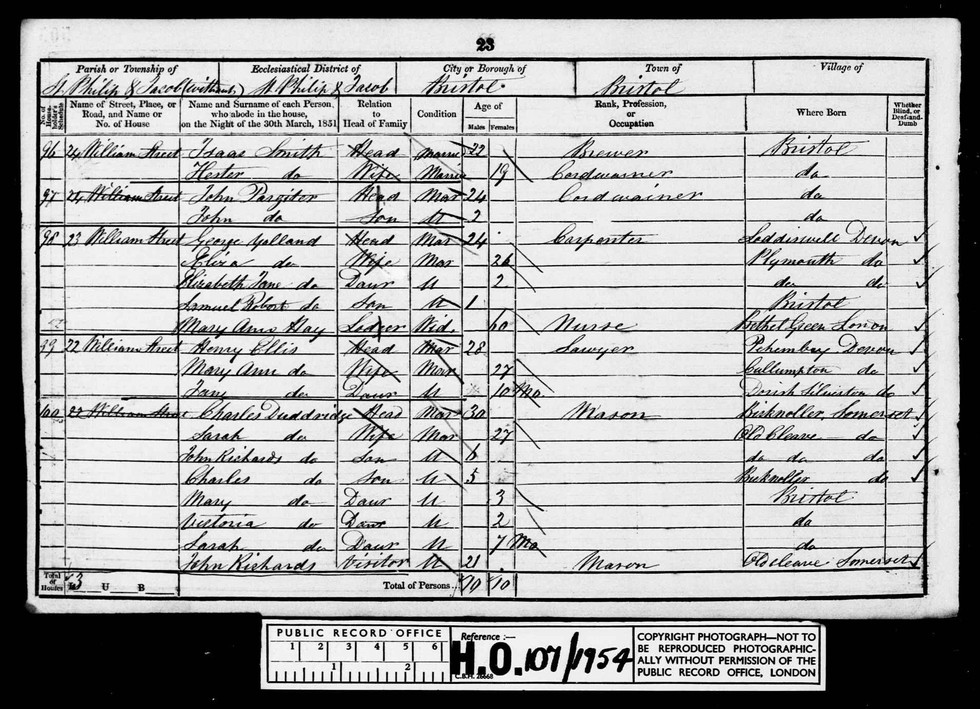 23
Parish or Township of Ecclesiastical District of City or Borough of Town of Village of
St. Philip & Jacob (without) St. Philip & Jacob Bristol Bristol
No. of Householder's Schedule Name of Street, Place, or Road, and Name or No. of House Name and Surname of each Person who abode in the house, on the Night of the 30th March, 1851 Relation to Head of Family Condition Age of Males Females Rank, Profession, or Occupation Where Born Whether Blind, or Deaf-and-Dumb
96 24 William Street Isaac Smith Head Married 22 Brewer Bristol
Hester do Wife Married 19 Cordwainer do
97 24 William Street John Pargiter Head Mar 24 Cordwainer do
John do Son U 2 do
98 23 William Street George Yelland Head Mar 24 Carpenter Loddiswell Devon
Eliza do Wife Mar 26 Plymouth do
Elizabeth Jane do Daur U 2 do do
Samuel Robert do Son U 1 Bristol
Mary Ann Hay Lodger Wid. 60 Nurse Bethel Green London
99 22 William Street Henry Ellis Head Mar 28 Sawyer Devon
Mary Ann do Wife Mar 27 Cullumpton do
Jane do Daur U 10 Mo do
100 22 William Street Charles Duddridge Head Mar 30 Mason Bicknoller Somerset
Sarah do Wife Mar 27 Old Cleave do
John Richards do Son U 6 do do do
Charles do Son U 5 Bicknoller do
Mary do Daur U 3 Bristol
Victoria do Daur U 2 do
Sarah do Daur U 7 Mo do
John Richards Visitor U 21 Mason Old Cleave Somerset
Total of Houses 3 U B Total of Persons 10 10
PUBLIC RECORD OFFICE
1 2 3 4 5 6
1 2
Reference :—
H.O. 107/1954
C.B.H. 26668
COPYRIGHT PHOTOGRAPH—NOT TO
BE REPRODUCED PHOTOGRAPHIC-
ALLY WITHOUT PERMISSION OF THE
PUBLIC RECORD OFFICE, LONDON